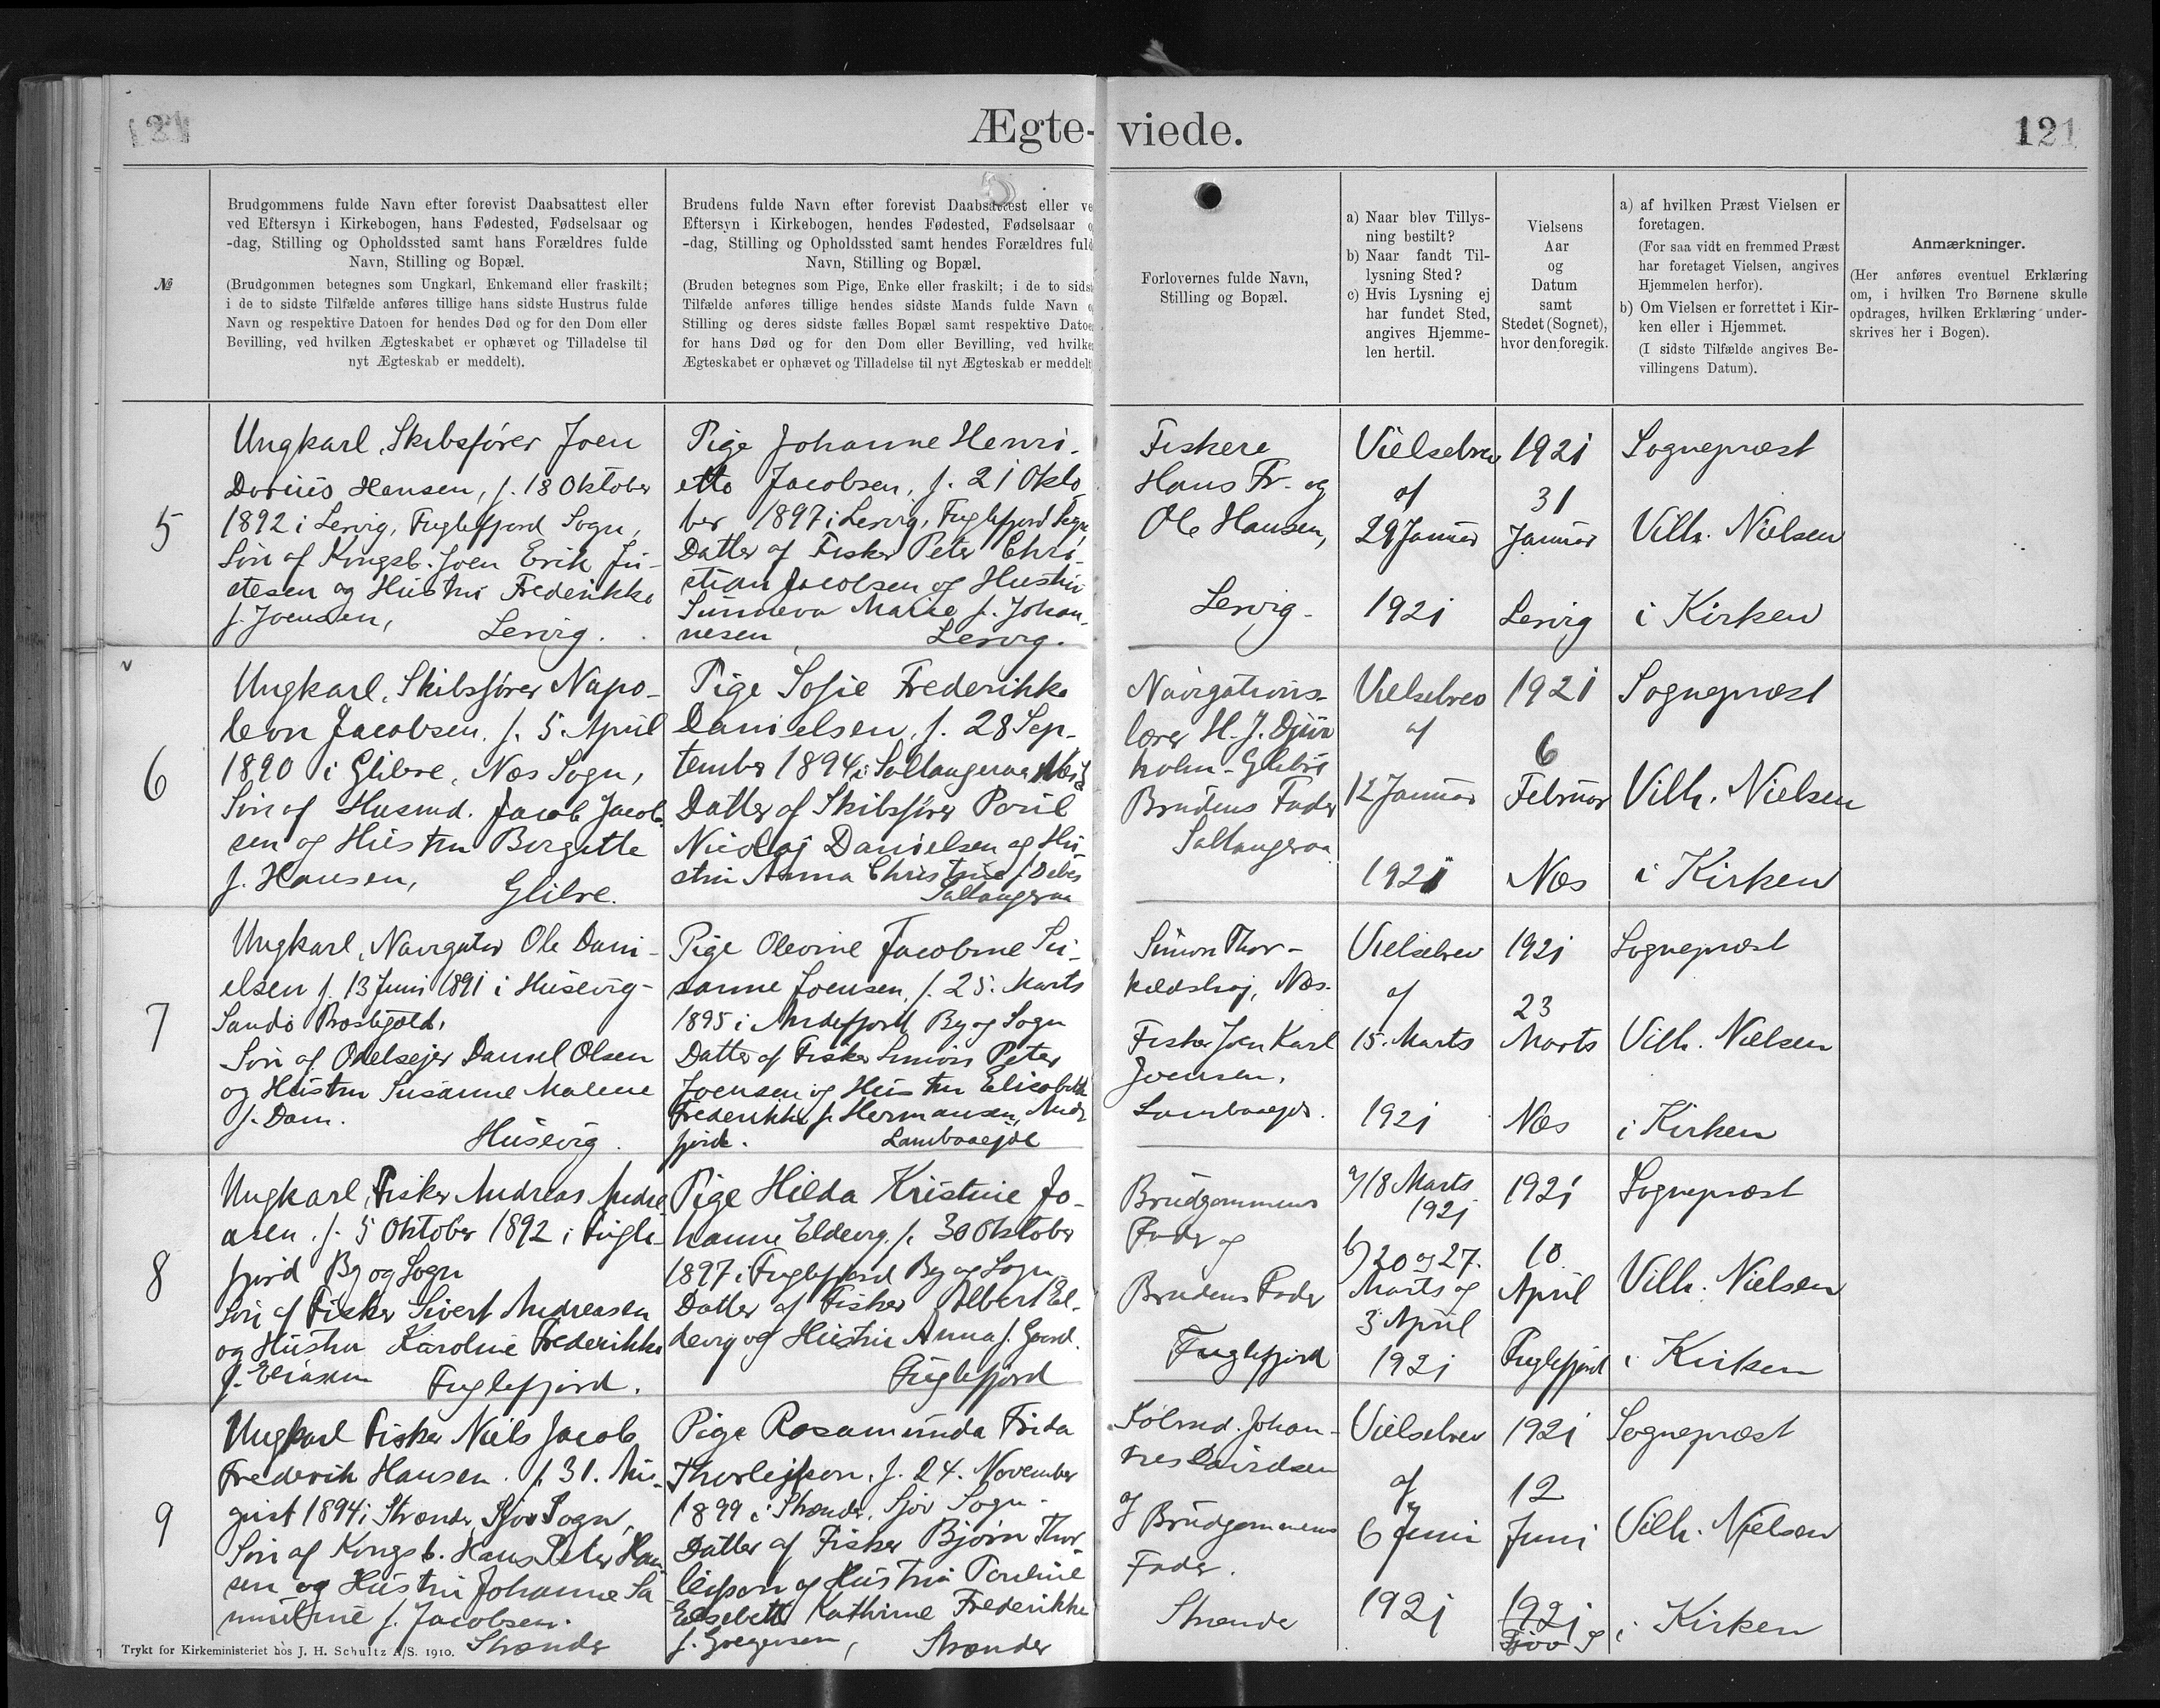 121
Ægte-
viede.
121
№
Brudgommens fulde Navn efter forevist Daabsattest eller
ved Eftersyn i Kirkebogen, hans Fødested, Fødselsaar og
-dag, Stilling og Opholdssted samt hans Forældres fulde
Navn, Stilling og Bopæl.
(Brudgommen betegnes som Ungkarl, Enkemand eller fraskilt;
i de to sidste Tilfælde anføres tillige hans sidste Hustrus fulde
Navn og respektive Datoen for hendes Død og for den Dom eller
Bevilling, ved hvilken Ægteskabet er ophævet og Tilladelse til
nyt Ægteskab er meddelt).
Brudens fulde Navn efter forevist Daabsattest eller ve
Eftersyn i Kirkebogen, hendes Fødested, Fødselsaar o
-dag, Stilling og Opholdssted samt hendes Forældres fuld
Navn, Stilling og Bopæl.
(Bruden betegnes som Pige, Enke eller fraskilt; i de to sids
Tilfælde anføres tillige hendes sidste Mands fulde Navn o
Stilling og deres sidste fælles Bopæl samt respektive Datoe
for hans Død og for den Dom eller Bevilling, ved hvilke
Ægteskabet er ophævet og Tilladelse til nyt Ægteskab er meddelt
Forlovernes fulde Navn,
Stilling og Bopæl.
a) Naar blev Tillys-
ning bestilt?
b) Naar fandt Til-
lysning Sted?
c) Hvis Lysning ej
har fundet Sted,
angives Hjemme-
len hertil.
Vielsens
Aar
og
Datum
samt
Stedet (Sognet),
hvor den foregik.
a) af hvilken Præst Vielsen er
foretagen.
(For saa vidt en fremmed Præst
har foretaget Vielsen, angives
Hjemmelen herfor).
b) Om Vielsen er forrettet i Kir-
ken eller i Hjemmet.
(I sidste Tilfælde angives Be-
villingens Datum).
Anmærkninger.
(Her anføres eventuel Erklæring
om, i hvilken Tro Børnene skulle
opdrages, hvilken Erklæring under-
skrives her i Bogen).
5
Ungkarl, Skibsfører Joen
Dorius Hansen, f. 18 Oktober
1892 i Lervig, Fuglefjord Sogn,
Søn af Kongsb. Joen Erik Ju-
stesen og Hustru Frederikke
f. Joensen,
Lervig.
Pige Johanne Henri-
ette Jacobsen, f. 21 Okto-
ber 1897 i Lervig, Fuglefjord Sogn
Datter af Fisker Peter Chri-
stian Jacobsen og Hustru
Sunneva Marie f. Johan-
nesen
Lervig.
Fiskere
Hans Fr. og
Ole Hansen,
Lervig.
Vielsebrev
af
29 Januar
1921
1921
31
Januar
Lervig
Sognepræst
Vilh. Nielsen
i Kirken
6
Ungkarl, Skibsfører Napo-
leon Jacobsen, f. 5. April
1890 i Glibre, Næs Sogn,
Søn af Husmd. Jacob Jacob-
sen og Hustru Birgitte
f. Hansen,
Glibre.
Pige Sofie Frederikke
Danielsen, f. 28 Sep-
tember 1894 i Saltangeraa
Datter af Skibsfører Poul
Nicolaj Danielsen og Hu-
stru Anna Christine f. Debes
Saltangeraa
Navigations-
lærer H. J. Djur
holm - Glibre
Brudens Fader
Saltangeraa
Vielsebrev
af
12 Januar
1921
1921
6
Februar
Næs
Sognepræst
Vilh. Nielsen
i Kirken
7
Ungkarl, Navigatør Ole Dani-
elsen f. 13 Juni 1891 i Husevig-
Sandø Præstegæld,
Søn af Odelsejer Daniel Olsen
og Hustru Susanne Malene
f. Dam.
Husevig.
Pige Olevine Jacobine Su-
sanne Joensen, f. 25. Marts
1895 i Andefjord By og Sogn
Datter af Fisker Simon Peter
Joensen og Hustru Elisabeth
Frederikke f. Hermansen, Ande
fjord.
Lambaaejde
Simon Thor-
keldshøj, Næs.
Fisker Joen Karl
Joensen,
Lambaaejde.
Vielsebrev
af
15. Marts
1921
1921
23
Marts
Næs
Sognepræst
Vilh. Nielsen
i Kirken
8
Ungkarl, Fisker Andreas Andre
asen, f. 5 Oktober 1892 i Fugle-
fjord By og Sogn
Søn af Fisker Sivert Andreasen
og Hustru Karoline Frederikke
f. Eliasen
Fuglefjord.
Pige Hilda Kristine Jo-
hanne Eldevig, f. 30 Oktober
1897 i Fuglefjord By og Sogn
Datter af Fisker Albert El-
devig og Hustru Anna f. Gaard.
Fuglefjord
Brudgommens
Fader og
Brudens Fader
Fuglefjord
a) 18 Marts
1921
b) 20 og 27.
Marts og
3 April
1921
1921
10.
April
Fuglefjord
Sognepræst
Vilh. Nielsen
i Kirken
9
Ungkarl Fisker Niels Jacob
Frederik Hansen, f. 31. Au-
gust 1894 i Strænder, Sjov Sogn,
Søn af Kongsb. Hans Peter Han
sen og Hustru Johanne Sa
muline f. Jacobsen.
Strænder
Pige Rosamunda Frida
Thorleifson, f. 24. November
1899 i Strænder, Sjov Sogn.
Datter af Fisker Bjørn Thor-
leifson og Hustru Pouline
Elsebeth Kathrine Frederikke
f. Gregersen,
Strænder
Kølmd. Johan-
nes Davidsen
og Brudgommens
Fader.
Strænder
Vielsebrev
af
6 Juni
1921
1921
12
Juni
1921
Sjov S
Sognepræst
Vilh. Nielsen
i Kirken
Trykt for Kirkeministeriet hos J. H. Schultz A/S. 1910.